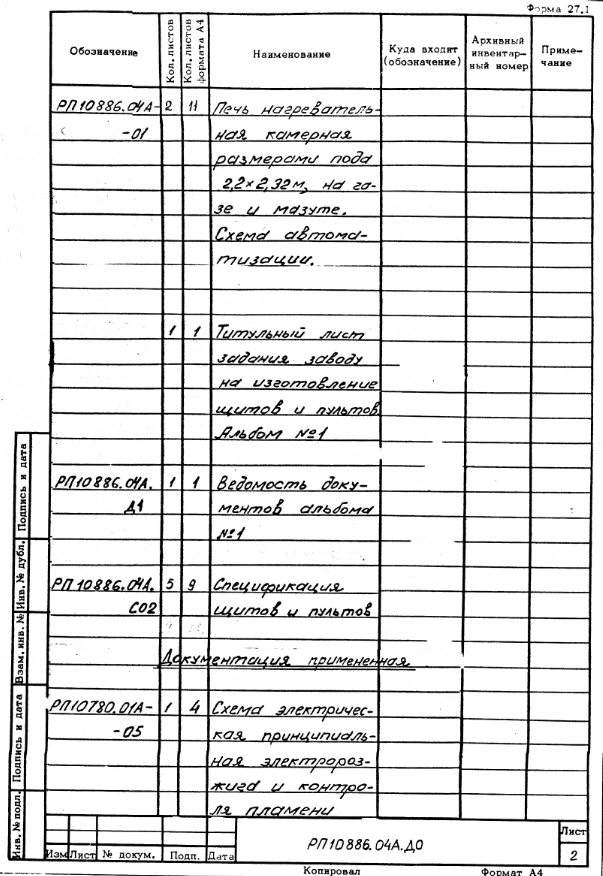 Форма 27.1
Обозначение
Кол. листов
Кол. листов формата А4
Наименование
Куда входит (обозначение)
Архивный инвентарный номер
Примечание
РП10886.04А- 2 11 Печь нагреватель-
-01 ная камерная
размерами пода
2,2×2,32м, на га-
зе и мазуте.
Схема автома-
тизации.
1 1 Титульный лист
задания заводу
на изготовление
щитов и пультов
Альбом №1
РП10886.04А. 1 1 Ведомость доку-
Д1 ментов альбома
№1
РП10886.04А. 5 9 Спецификация
С02 щитов и пультов
Документация примененная
РП10780.01А- 1 4 Схема электричес-
-05 кая принципиаль-
ная электророз-
жига и контро-
ля пламени
Инв. № подл.
Подпись и дата
Взам. инв. №
Инв. № дубл.
Подпись и дата
Изм Лист № докум. Подп. Дата
РП10886.04А.Д0
Лист
2
Копировал
Формат А4